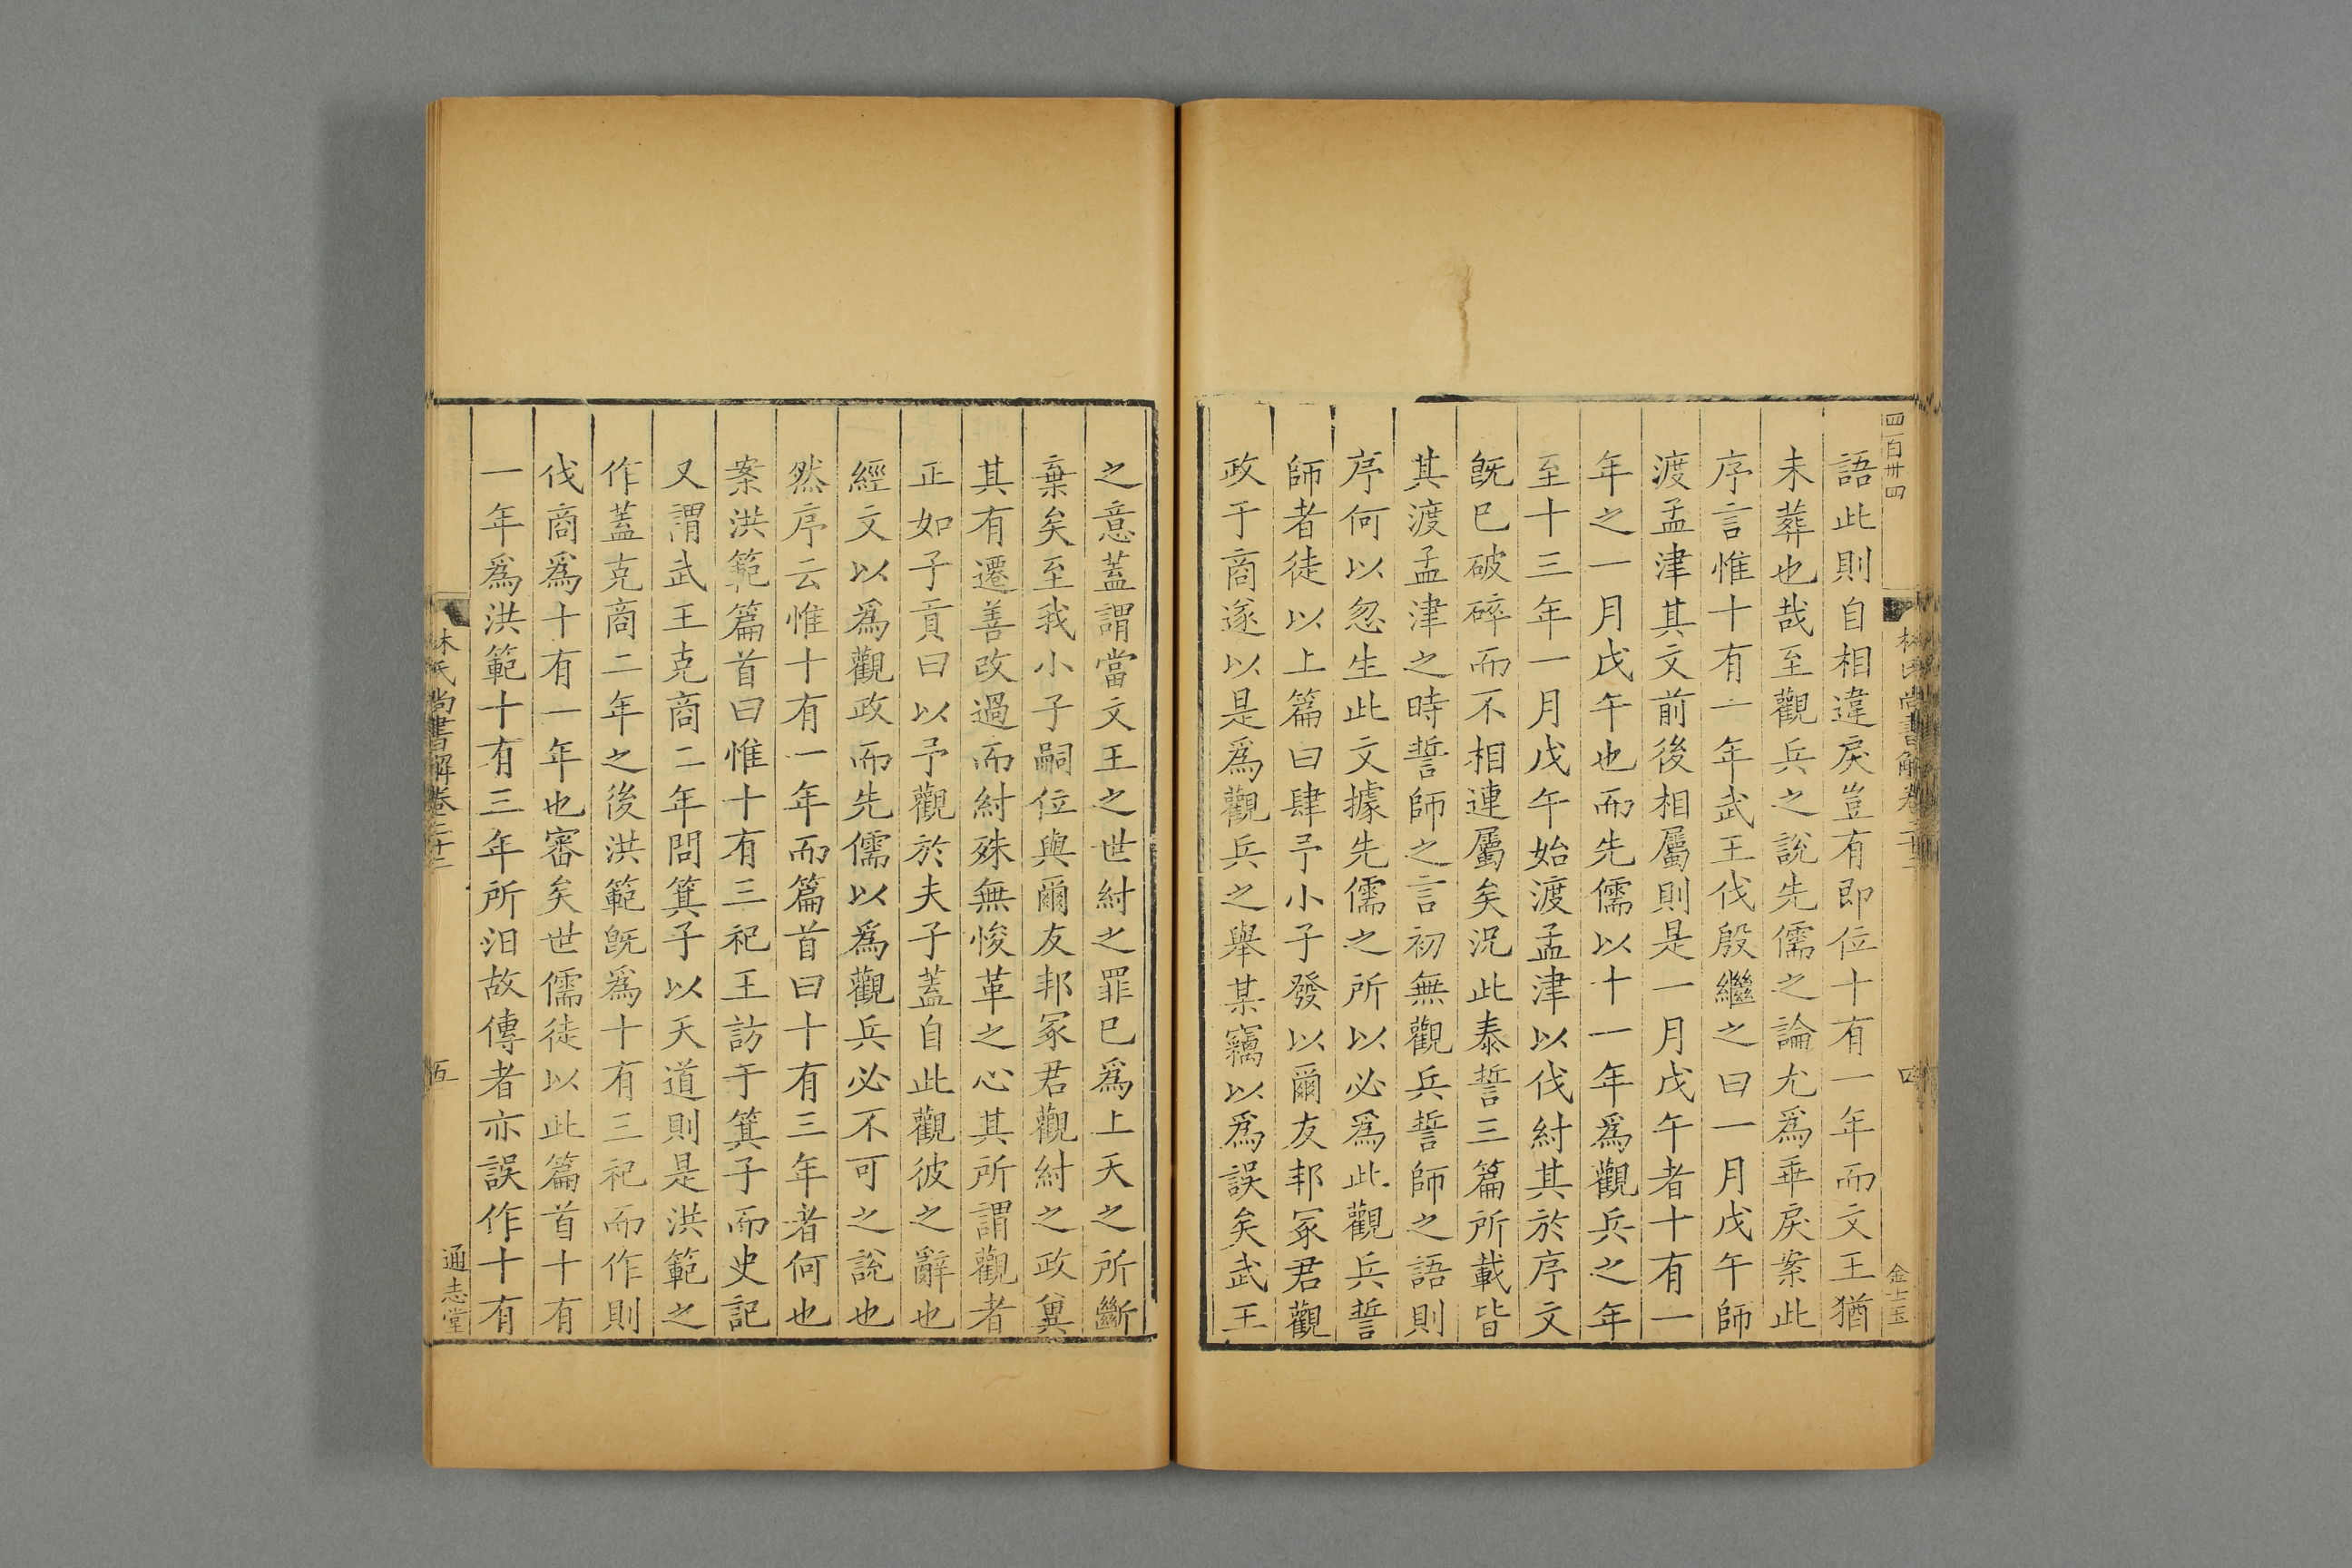 四百卅四
林氏尚書解卷二十二
四
金士玉
語此則自相違戾豈有即位十有一年而文王猶
未葬也哉至觀兵之說先儒之論尤為乖戾案此
序言惟十有一年武王伐殷繼之曰一月戊午師
渡孟津其文前後相屬則是一月戊午者十有一
年之一月戊午也而先儒以十一年爲觀兵之年
至十三年一月戊午始渡孟津以伐紂其於序文
旣已破碎而不相連屬矣况此泰誓三篇所載皆
其渡孟津之時誓師之言初無觀兵誓師之語則
序何以忽生此文據先儒之所以必爲此觀兵誓
師者徒以上篇曰肆予小子發以爾友邦冢君觀
政于商遂以是爲觀兵之舉某竊以爲誤矣武王
之意蓋謂當文王之世紂之罪已爲上天之所斷
棄矣至我小子嗣位與爾友邦冢君觀紂之政冀
其有遷善改過而紂殊無悛革之心其所謂觀者
正如子貢曰以予觀於夫子蓋自此觀彼之辭也
經文以爲觀政而先儒以爲觀兵必不可之說也
然序云惟十有一年而篇首曰十有三年者何也
案洪範篇首曰惟十有三祀王訪于箕子而史記
又謂武王克商二年問箕子以天道則是洪範之
作蓋克商二年之後洪範旣爲十有三祀而作則
伐商爲十有一年也審矣世儒徒以此篇首十有
一年爲洪範十有三年所汨故傳者亦誤作十有
林氏尚書解卷二十二
五
通志堂